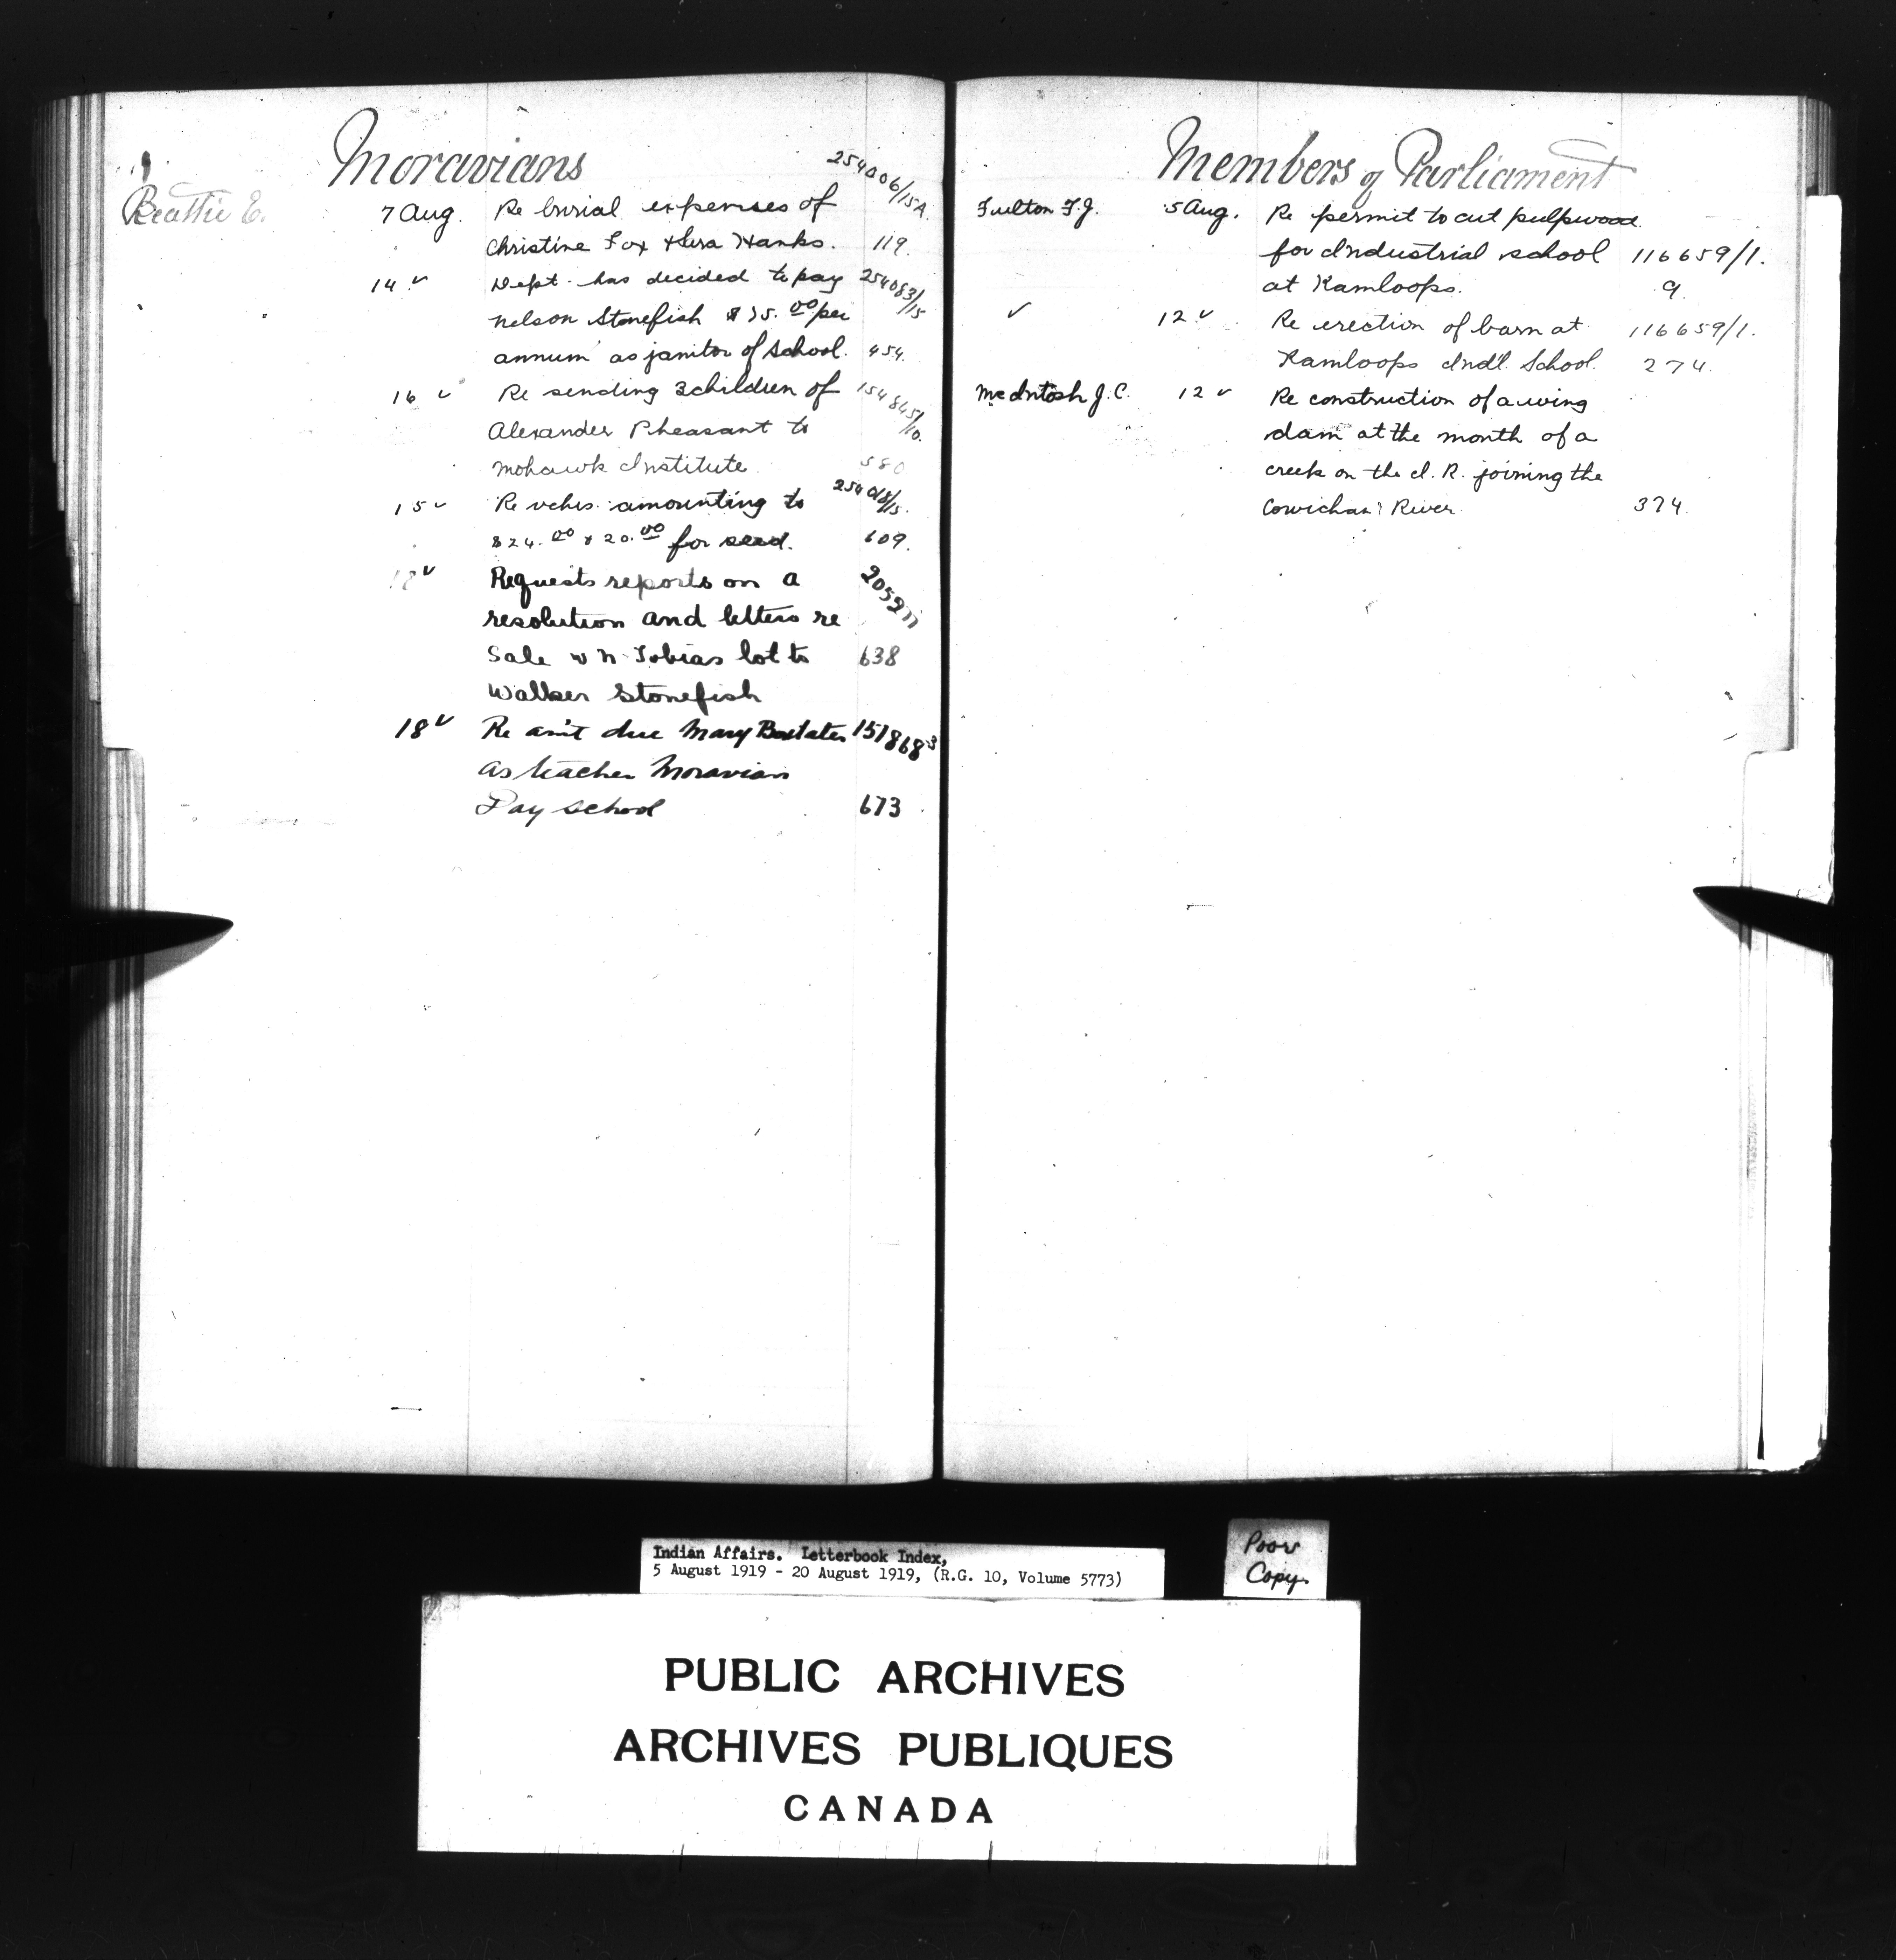 Moravians
254006/15A.
Beattie E. 7 Aug. Re burial expenses of
Christine Fox & Hanks. 119.
14 ✓ Dept. has decided to pay 254083/15
Nelson Stonefish $ 75.00 per
annum as janitor of School. 454.
16 ✓ Re sending 3 children of 154845/10.
Alexander Pheasant to
Mohawk Institute 580
15 ✓ Re vchs. amounting to 254018/15.
$24.00 & 20.00 for seed. 609.
18 ✓ Requests reports on a 205277
resolution and letters re
Sale W N Tobias lot to 638
Walker Stonefish
18 ✓ Re am't due Mary 1518683
as teacher Moravian
Day School 673
Members of Parliament
Fulton F.J. 5 Aug. Re permit to cut pulpwood
for Industrial school 116659/1.
at Kamloops. 9.
✓ 12 ✓ Re erection of barn at 116659/1.
Kamloops Ind'l. School. 274.
McIntosh J.C. 12 ✓ Re construction of a wing
dam at the mouth of a
creek on the I. R. joining the
Cowichan River 374.
Indian Affairs. Letterbook Index,
5 August 1919 - 20 August 1919, (R.G. 10, Volume 5773)
Poor
Copy.
PUBLIC ARCHIVES
ARCHIVES PUBLIQUES
CANADA